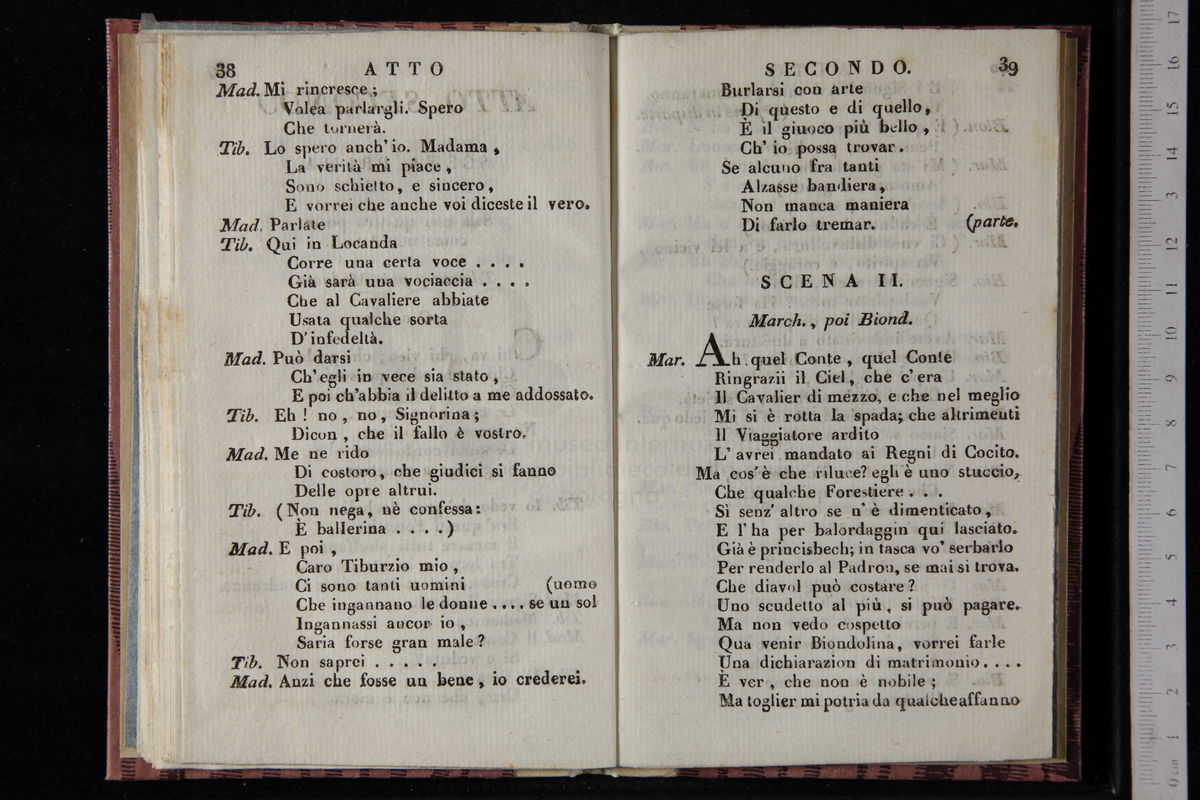 38 ATTO
Mad. Mi rincresce;
Volea parlargli. Spero
Che tornerà.
Tib. Lo spero anch'io. Madama,
La verità mi piace,
Sono schietto, e sincero,
E vorrei che anche voi diceste il vero.
Mad. Parlate
Tib. Qui in Locanda
Corre una certa voce . . . .
Già sarà una vociaccia . . . .
Che al Cavaliere abbiate
Usata qualche sorta
D'infedeltà.
Mad. Può darsi
Ch'egli in vece sia stato,
E poi ch'abbia il delitto a me addossato.
Tib. Eh! no, no, Signorina;
Dicon, che il fallo è vostro.
Mad. Me ne rido
Di costoro, che giudici si fanno
Delle opre altrui.
Tib. (Non nega, nè confessa:
È ballerina . . . .)
Mad. E poi,
Caro Tiburzio mio,
Ci sono tanti uomini (uomo
Che ingannano le donne .... se un sol
Ingannassi ancor io,
Saria forse gran male?
Tib. Non saprei . . . . .
Mad. Anzi che fosse un bene, io crederei.
SECONDO. 39
Burlarsi con arte
Di questo e di quello,
È il giuoco più bello,
Ch'io possa trovar.
Se alcuno fra tanti
Alzasse bandiera,
Non manca maniera
Di farlo tremar. (parte.
SCENA II.
March., poi Biond.
Mar. Ah quel Conte, quel Conte
Ringrazii il Ciel, che c'era
Il Cavalier di mezzo, e che nel meglio
Mi si è rotta la spada; che altrimenti
Il Viaggiatore ardito
L'avrei mandato ai Regni di Cocito.
Ma cos'è che riluce? egli è uno stuccio,
Che qualche Forestiere . . .
Sì senz'altro se n'è dimenticato,
E l'ha per balordaggin qui lasciato.
Già è princisbech; in tasca vo' serbarlo
Per renderlo al Padron, se mai si trova.
Che diavol può costare?
Uno scudetto al più, si può pagare.
Ma non vedo cospetto
Qua venir Biondolina, vorrei farle
Una dichiarazion di matrimonio....
È ver, che non è nobile;
Ma toglier mi potria da qualche affanno